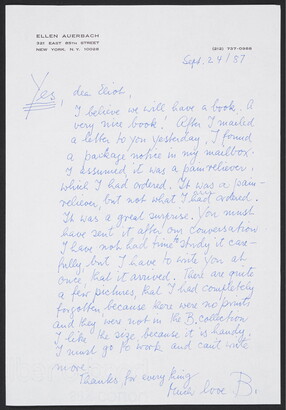 ELLEN AUERBACH
321 EAST 65TH STREET
NEW YORK, N.Y. 10028
(212) 737-0988
Sept. 24/87
Yes, dear Eliot,
I believe we will have a book. A
very nice book! After I mailed
a letter to you yesterday, I found
a package notice in my mailbox.
I assumed it was a pain reliever,
which I had ordered. It was a pain-
reliever, but not what I had ordered.
It was a great surprise. You must
have sent it after our conversation
I have not had time to study it care-
fully, but I have to write you at
once, that it arrived. There are quite
a few pictures, that I had completely
forgotten, because there were no prints
and they were not in the B. collection
I like the size, because it is handy.
I must go to work and can't write
more.
Thanks for everything
Much love B.